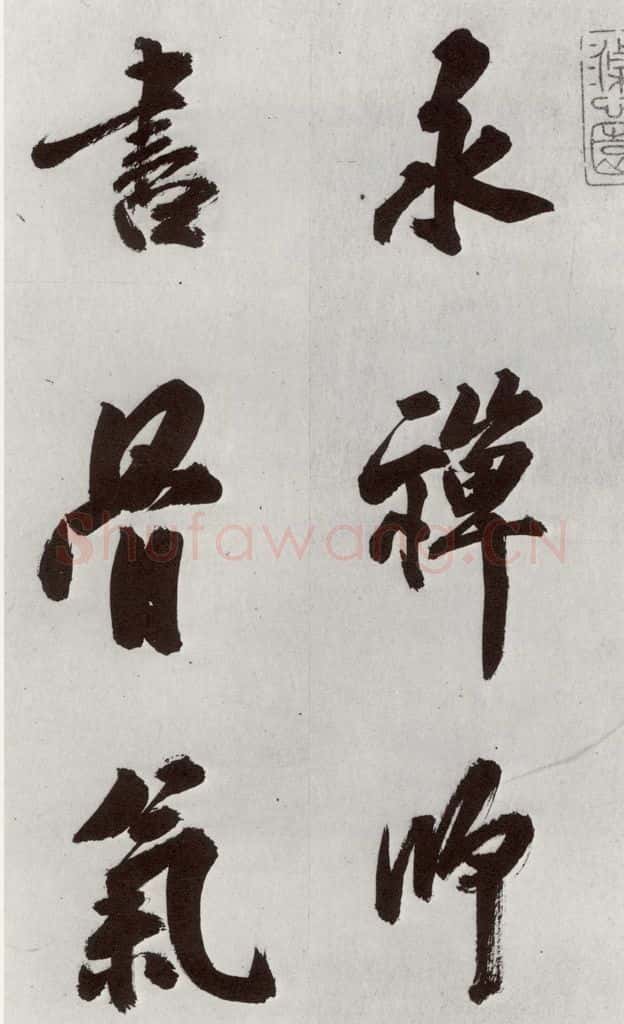 永禪師
書骨氣
Shufawang.CN